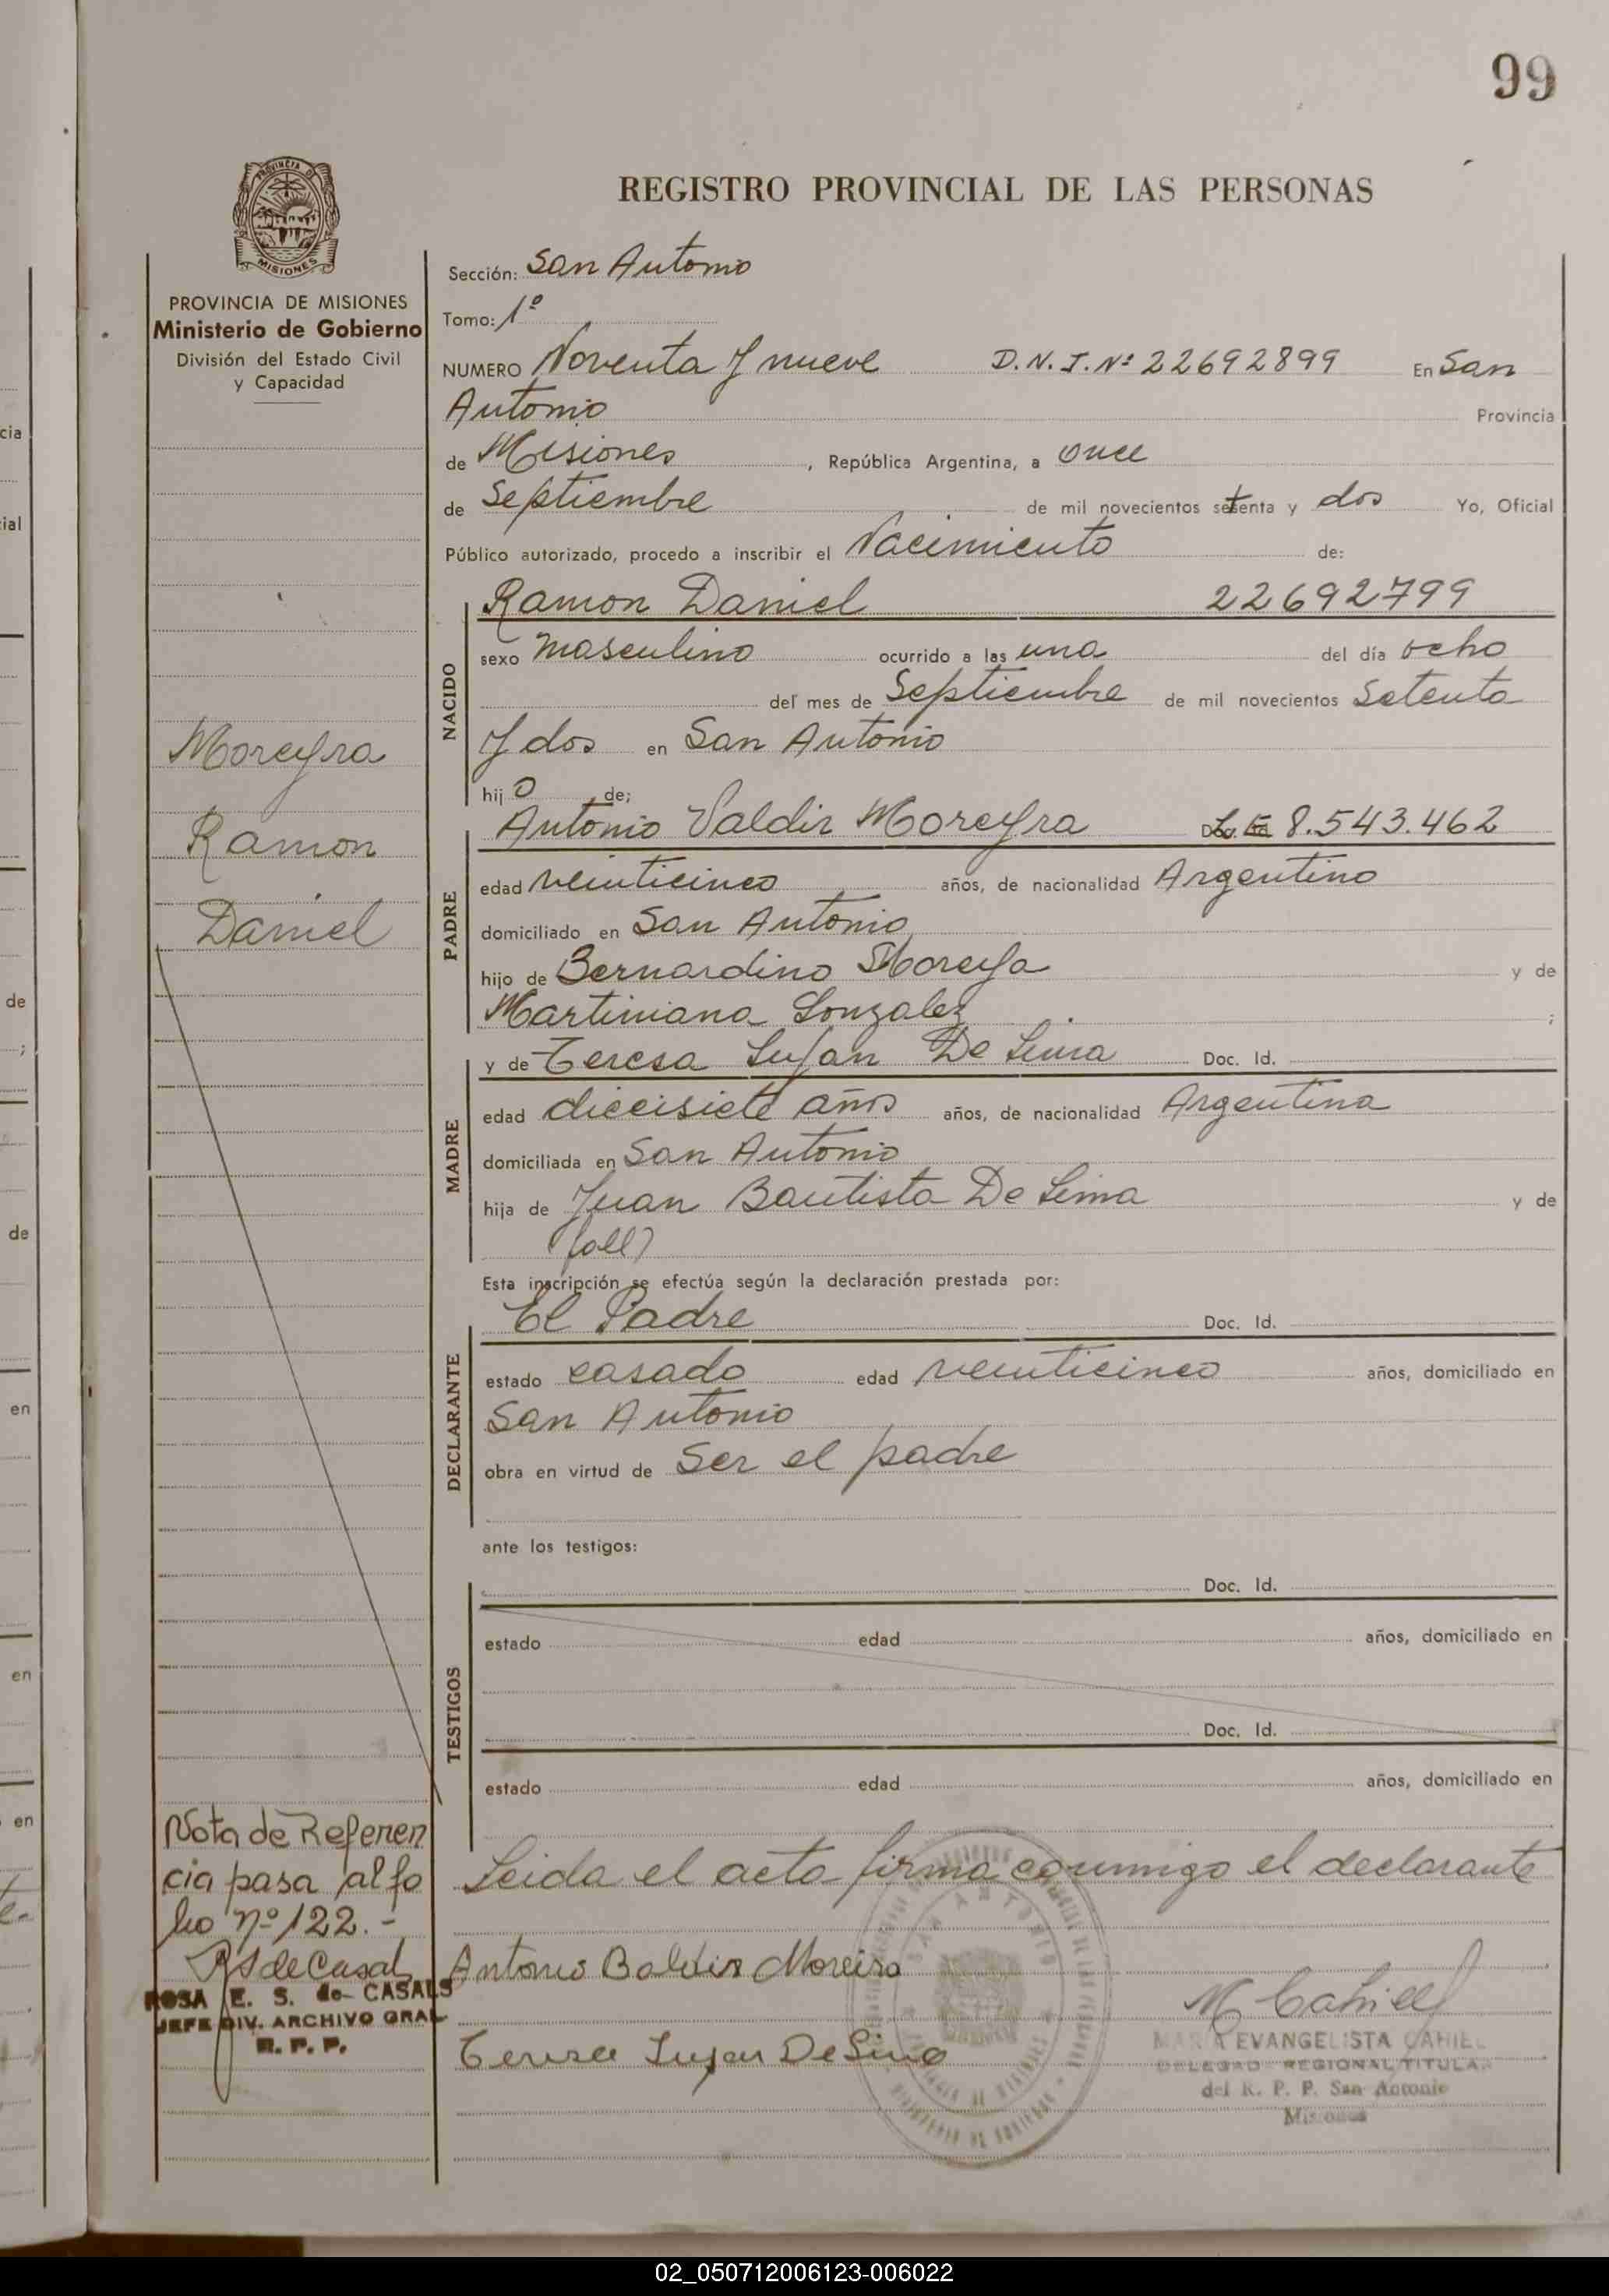 99
REGISTRO PROVINCIAL DE LAS PERSONAS
PROVINCIA DE MISIONES
Ministerio de Gobierno
División del Estado Civil
y Capacidad
Moreyra
Ramon
Daniel
Nota de Referen
cia pasa al fo
lio nº 122.-
RSdeCasals
ROSA E. S. de CASALS
JEFE DIV. ARCHIVO GRAL
R. P. P.
Sección: San Antonio
Tomo: 1º
NUMERO Noventa y nueve D.N.I. Nº 22692899 En San
Antonio Provincia
de Misiones, República Argentina, a once
de Septiembre de mil novecientos setenta y dos Yo, Oficial
Público autorizado, procedo a inscribir el Nacimiento de:
NACIDO
Ramon Daniel 22692799
sexo masculino ocurrido a las una del día ocho
del mes de Septiembre de mil novecientos Setenta
y dos en San Antonio
hijo de;
PADRE
Antonio Valdir Moreyra 8.543.462
edad veinticinco años, de nacionalidad Argentino
domiciliado en San Antonio
hijo de Bernardino Moreya y de
Martiniana Gonzalez ;
MADRE
y de Teresa Lujan De Lima Doc. Id.
edad diecisiete años años, de nacionalidad Argentina
domiciliada en San Antonio
hija de Juan Bautista De Lima y de
(fall)
Esta inscripción se efectúa según la declaración prestada por:
DECLARANTE
El Padre Doc. Id.
estado casado edad veinticinco años, domiciliado en
San Antonio
obra en virtud de Ser el padre
ante los testigos:
TESTIGOS
Doc. Id.
estado edad años, domiciliado en
Doc. Id.
estado edad años, domiciliado en
Leida el acta firma conmigo el declarante
Antonio Baldir Moreira
Teresa Lujan De Lima
M Cahiel
MARIA EVANGELISTA CAHIEL
DELEGADO REGIONAL TITULAR
del R. P. P. San Antonio
Misiones
02_050712006123-006022